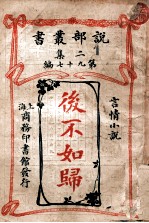 說部叢書
二集
第九十七編
言情小說
後不如歸
上海商務印書館發行